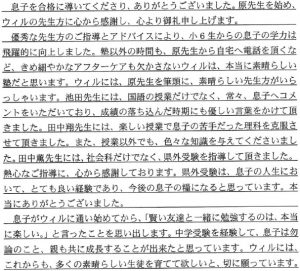 息子を合格に導いてくださり、ありがとうございました。原先生を始め、
ウィルの先生方に心から感謝し、心より御礼申し上げます。
優秀な先生方のご指導とアドバイスにより、小６生からの息子の学力は
飛躍的に向上しました。塾以外の時間も、原先生から自宅へ電話を頂くな
ど、きめ細やかなアフターケアも欠かさないウィルは、本当に素晴らしい
塾だと思います。ウィルには、原先生を筆頭に、素晴らしい先生方がいら
っしゃいます。池田先生には、国語の授業だけでなく、常々、息子へコメ
ントをいただいており、成績の落ち込んだ時期にも優しい言葉をかけて頂
きました。田中翔先生には、楽しい授業で息子の苦手だった理科を克服さ
せて頂きました。また、授業以外でも、色々な知識を与えてくださいまし
た。田中薫先生には、社会科だけでなく、県外受験を指導して頂きました。
熱心なご指導に、心から感謝しております。県外受験は、息子の人生にお
いて、とても良い経験であり、今後の息子の糧になると思っています。本
当にありがとうございました。
息子がウィルに通い始めてから、「賢い友達と一緒に勉強するのは、本当
に楽しい。」と言ったことを思い出します。中学受験を経験して、息子は勿
論のこと、親も共に成長することが出来たと思っています。ウィルには、
これからも、多くの素晴らしい生徒を育てて欲しいと、切に願っています。